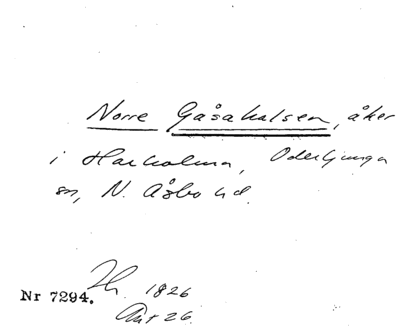 Norre Gåsahalsen, åker
i Harholma, Oderljunga
sn, N. Åsbo hd.
Nr 7294. Zh. 1826
Akt 26.